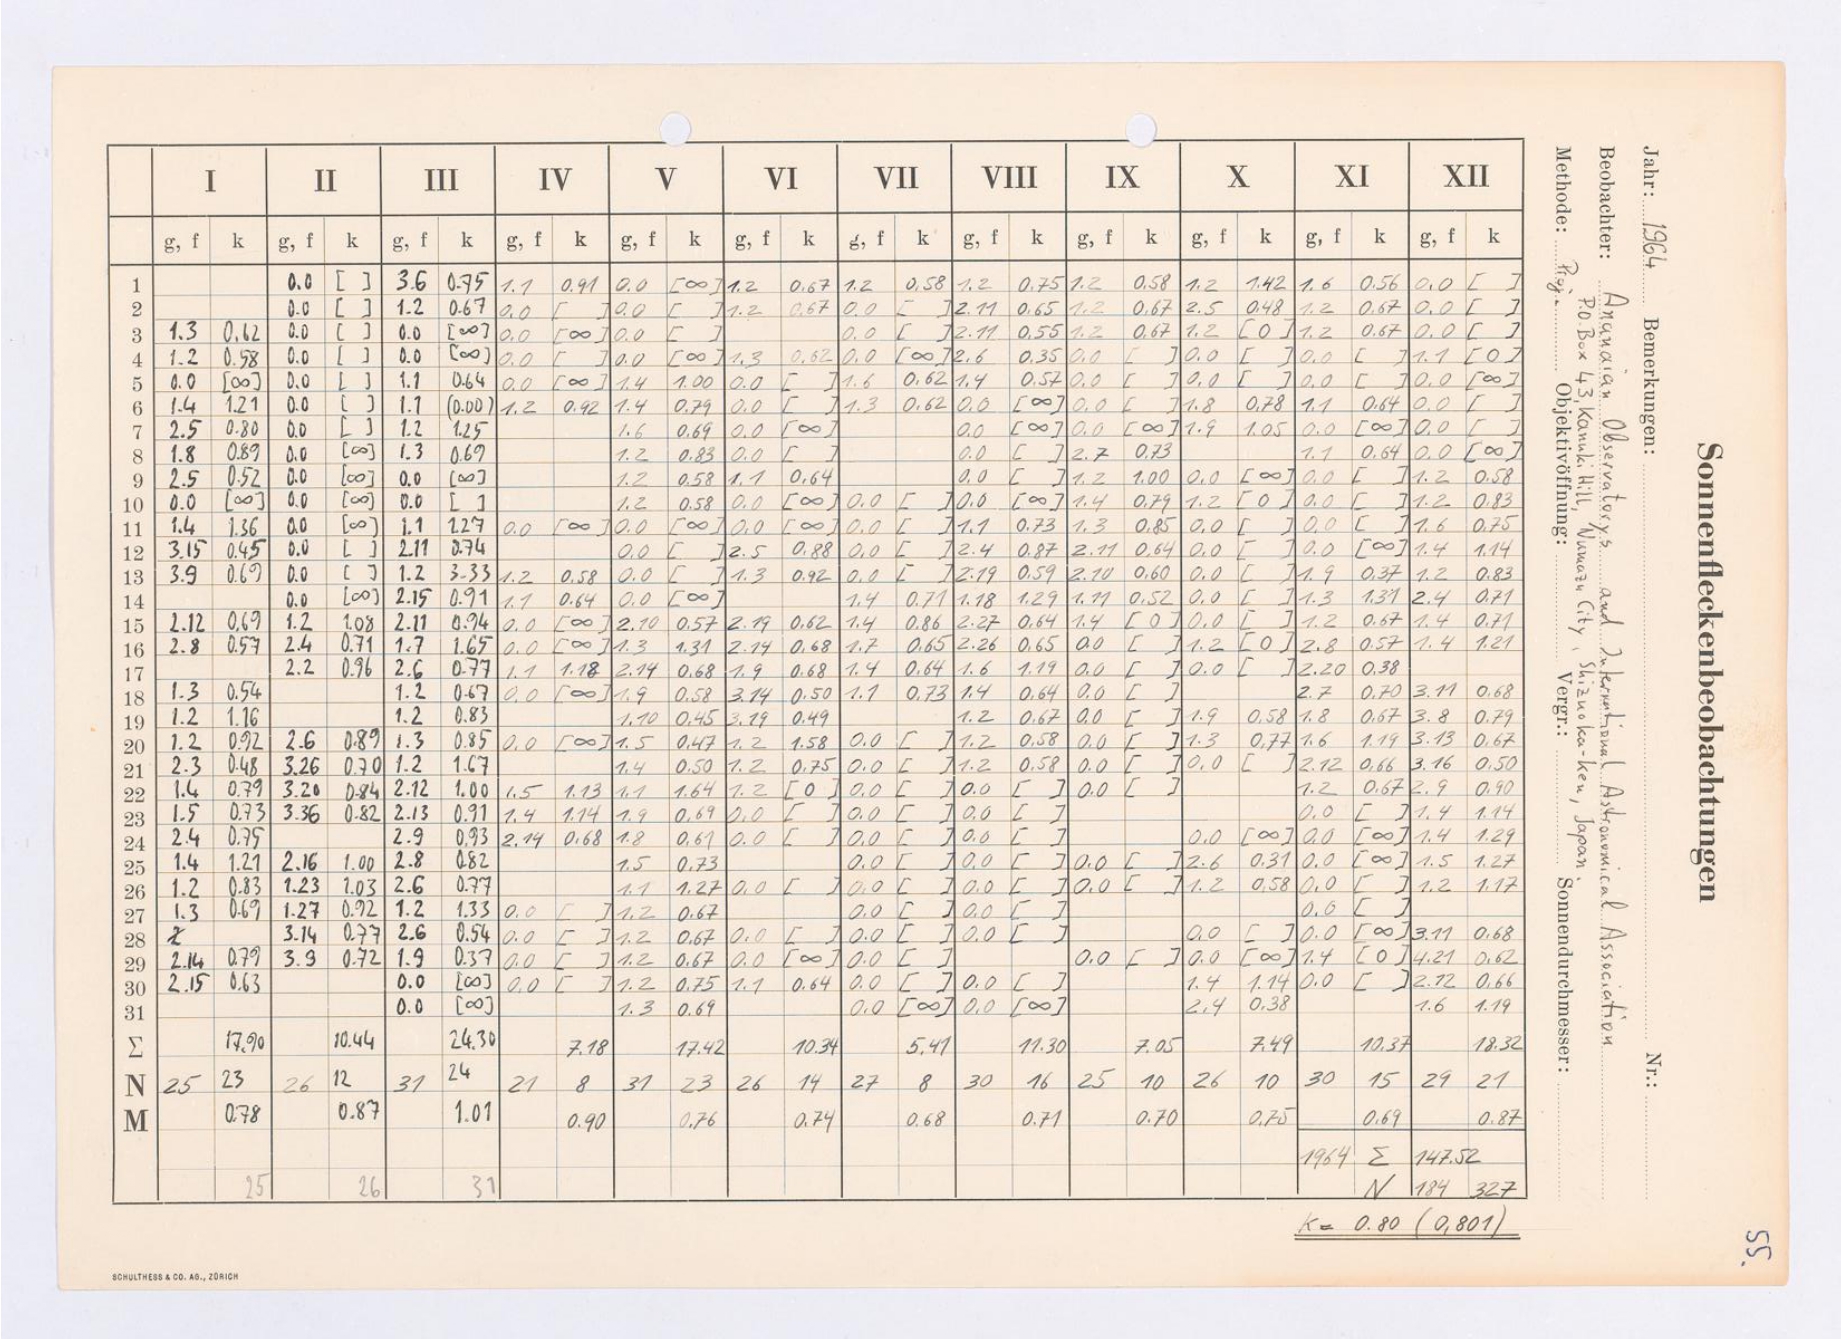 Sonnenfleckenbeobachtungen
Jahr: 1964 Bemerkungen: Nr.:
Beobachter: Anguaian Observatorys and International Astronomical Association
P.O. Box 43, Kanuki Hill, Numazu City, Shizuoka-ken, Japan.
Methode: Proj. Objektivöffnung: Vergr.: Sonnendurchmesser:
I II III IV V VI VII VIII IX X XI XII
g, f k g, f k g, f k g, f k g, f k g, f k g, f k g, f k g, f k g, f k g, f k g, f k
1 0.0 [ ] 3.6 0.75 1.1 0.91 0.0 [∞] 1.2 0.67 1.2 0.58 1.2 0.75 1.2 0.58 1.2 1.42 1.6 0.56 0.0 [ ]
2 0.0 [ ] 1.2 0.67 0.0 [ ] 0.0 [ ] 1.2 0.67 0.0 [ ] 2.11 0.65 1.2 0.67 2.5 0.48 1.2 0.67 0.0 [ ]
3 1.3 0.62 0.0 [ ] 0.0 [∞] 0.0 [∞] 0.0 [ ] 0.0 [ ] 2.11 0.55 1.2 0.67 1.2 [0] 1.2 0.67 0.0 [ ]
4 1.2 0.58 0.0 [ ] 0.0 [∞] 0.0 [ ] 0.0 [∞] 1.3 0.62 0.0 [∞] 2.6 0.35 0.0 [ ] 0.0 [ ] 0.0 [ ] 1.1 [0]
5 0.0 [∞] 0.0 [ ] 1.1 0.64 0.0 [∞] 1.4 1.00 0.0 [ ] 1.6 0.62 1.4 0.57 0.0 [ ] 0.0 [ ] 0.0 [ ] 0.0 [∞]
6 1.4 1.21 0.0 [ ] 1.1 (0.00) 1.2 0.92 1.4 0.79 0.0 [ ] 1.3 0.62 0.0 [∞] 0.0 [ ] 1.8 0.78 1.1 0.64 0.0 [ ]
7 2.5 0.80 0.0 [ ] 1.2 1.25 1.6 0.69 0.0 [∞] 0.0 [∞] 0.0 [∞] 1.9 1.05 0.0 [∞] 0.0 [ ]
8 1.8 0.89 0.0 [∞] 1.3 0.69 1.2 0.83 0.0 [ ] 0.0 [ ] 2.7 0.73 1.1 0.64 0.0 [∞]
9 2.5 0.52 0.0 [∞] 0.0 [∞] 1.2 0.58 1.1 0.64 0.0 [ ] 1.2 1.00 0.0 [∞] 0.0 [ ] 1.2 0.58
10 0.0 [∞] 0.0 [∞] 0.0 [ ] 1.2 0.58 0.0 [∞] 0.0 [ ] 0.0 [∞] 1.4 0.79 1.2 [0] 0.0 [ ] 1.2 0.83
11 1.4 1.36 0.0 [∞] 1.1 1.27 0.0 [∞] 0.0 [∞] 0.0 [∞] 0.0 [ ] 1.1 0.73 1.3 0.85 0.0 [ ] 0.0 [ ] 1.6 0.75
12 3.15 0.45 0.0 [ ] 2.11 0.74 0.0 [ ] 2.5 0.88 0.0 [ ] 2.4 0.87 2.11 0.64 0.0 [ ] 0.0 [∞] 1.4 1.14
13 3.9 0.69 0.0 [ ] 1.2 3.33 1.2 0.58 0.0 [ ] 1.3 0.92 0.0 [ ] 2.19 0.59 2.10 0.60 0.0 [ ] 1.9 0.37 1.2 0.83
14 0.0 [∞] 2.15 0.91 1.1 0.64 0.0 [∞] 1.4 0.71 1.18 1.29 1.11 0.52 0.0 [ ] 1.3 1.31 2.4 0.71
15 2.12 0.69 1.2 1.08 2.11 0.94 0.0 [∞] 2.10 0.57 2.19 0.62 1.4 0.86 2.27 0.64 1.4 [0] 0.0 [ ] 1.2 0.67 1.4 0.71
16 2.8 0.57 2.4 0.71 1.7 1.65 0.0 [∞] 1.3 1.31 2.14 0.68 1.7 0.65 2.26 0.65 0.0 [ ] 1.2 [0] 2.8 0.57 1.4 1.21
17 2.2 0.96 2.6 0.77 1.1 1.18 2.14 0.68 1.9 0.68 1.4 0.64 1.6 1.19 0.0 [ ] 0.0 [ ] 2.20 0.38
18 1.3 0.54 1.2 0.67 0.0 [∞] 1.9 0.58 3.14 0.50 1.1 0.73 1.4 0.64 0.0 [ ] 2.7 0.70 3.11 0.68
19 1.2 1.16 1.2 0.83 1.10 0.45 3.19 0.49 1.2 0.67 0.0 [ ] 1.9 0.58 1.8 0.67 3.8 0.79
20 1.2 0.92 2.6 0.89 1.3 0.85 0.0 [∞] 1.5 0.47 1.2 1.58 0.0 [ ] 1.2 0.58 0.0 [ ] 1.3 0.77 1.6 1.19 3.13 0.67
21 2.3 0.48 3.26 0.70 1.2 1.67 1.4 0.50 1.2 0.75 0.0 [ ] 1.2 0.58 0.0 [ ] 0.0 [ ] 2.12 0.66 3.16 0.50
22 1.4 0.79 3.20 0.84 2.12 1.00 1.5 1.13 1.1 1.64 1.2 [0] 0.0 [ ] 0.0 [ ] 0.0 [ ] 1.2 0.67 2.9 0.90
23 1.5 0.73 3.36 0.82 2.13 0.91 1.4 1.14 1.9 0.69 0.0 [ ] 0.0 [ ] 0.0 [ ] 0.0 [ ] 1.4 1.14
24 2.4 0.75 2.9 0.93 2.14 0.68 1.8 0.61 0.0 [ ] 0.0 [ ] 0.0 [ ] 0.0 [∞] 0.0 [∞] 1.4 1.29
25 1.4 1.21 2.16 1.00 2.8 0.82 1.5 0.73 0.0 [ ] 0.0 [ ] 0.0 [ ] 2.6 0.31 0.0 [∞] 1.5 1.27
26 1.2 0.83 1.23 1.03 2.6 0.77 1.1 1.27 0.0 [ ] 0.0 [ ] 0.0 [ ] 0.0 [ ] 1.2 0.58 0.0 [ ] 1.2 1.17
27 1.3 0.69 1.27 0.92 1.2 1.33 0.0 [ ] 1.2 0.67 0.0 [ ] 0.0 [ ] 0.0 [ ]
28 3.14 0.77 2.6 0.54 0.0 [ ] 1.2 0.67 0.0 [ ] 0.0 [ ] 0.0 [ ] 0.0 [ ] 0.0 [∞] 3.11 0.68
29 2.14 0.79 3.9 0.72 1.9 0.37 0.0 [ ] 1.2 0.67 0.0 [∞] 0.0 [ ] 0.0 [ ] 0.0 [∞] 1.4 [0] 4.21 0.62
30 2.15 0.63 0.0 [∞] 0.0 [ ] 1.2 0.75 1.1 0.64 0.0 [ ] 0.0 [ ] 1.4 1.14 0.0 [ ] 2.12 0.66
31 0.0 [∞] 1.3 0.69 0.0 [∞] 0.0 [∞] 2.4 0.38 1.6 1.19
Σ 17.90 10.44 24.30 7.18 17.42 10.34 5.41 11.30 7.05 7.49 10.37 18.32
N 25 23 26 12 31 24 21 8 31 23 26 14 27 8 30 16 25 10 26 10 30 15 29 21
M 0.78 0.87 1.01 0.90 0.76 0.74 0.68 0.71 0.70 0.75 0.69 0.87
1964 Σ 147.52
25 26 31 N 184 327
K = 0.80 (0,801)
55.
SCHULTHESS & CO. AG., ZÜRICH